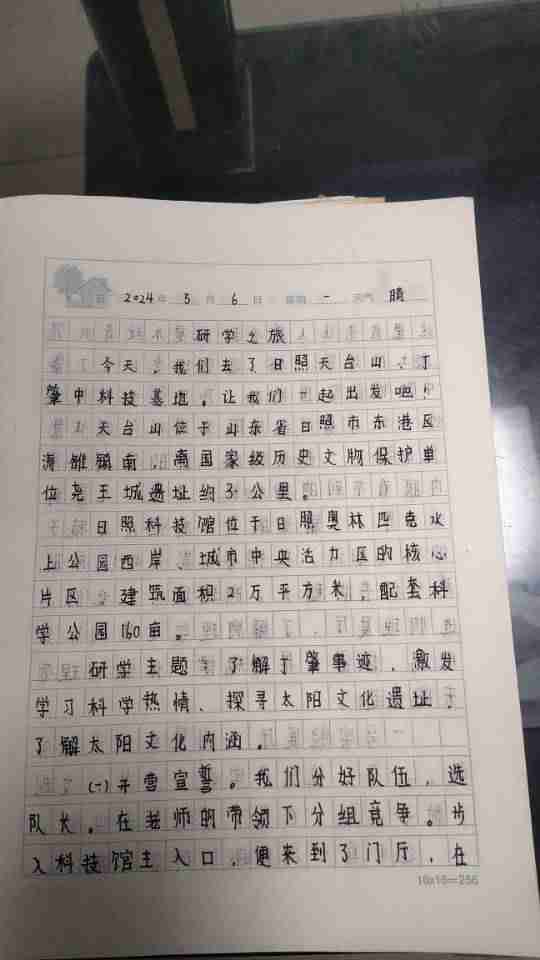 2024年 5月 6日 星期 一 天气 晴
研学之旅
今天，我们去了日照天台山、丁
肇中科技基地。让我们一起出发吧！
天台山位于山东省日照市东港区
涛雒镇南，离国家级历史文物保护单
位尧王城遗址约3公里。
日照科技馆位于日照奥林匹克水
上公园西岸、城市中央活力区的核心
片区，建筑面积2万平方米，配套科
学公园160亩。
研学主题：了解丁肇事迹、激发
学习科学热情、探寻太阳文化遗址
了解太阳文化内涵。
(一)开营宣誓。我们分好队伍，选
队长。在老师的带领下分组竞争。步
入科技馆主入口，便来到了门厅，在
16x16=256